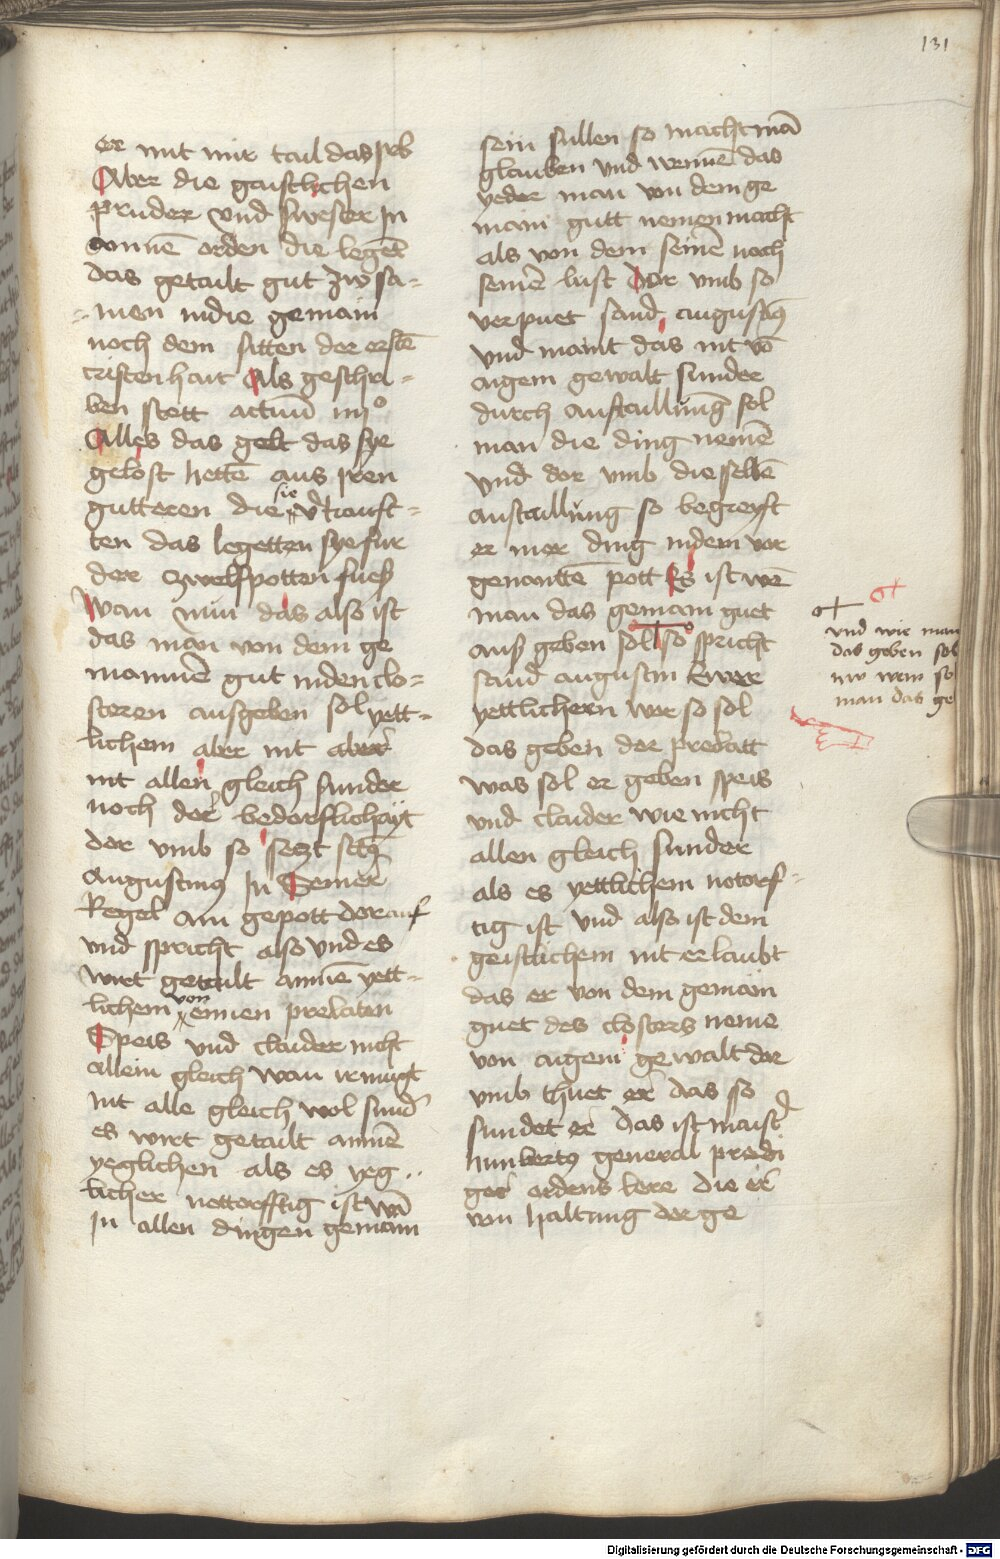 131
er mit mir tail das erb
Aber die gaistlichen
pruder vnd swester In
ainnē orden die legēt
das getailt gut zw sa-
-men indie gemain
noch dem sitten der erstē
cristenhait Als geschri-
ben stett actuū iiijo
Alles das gelt das sye
gelost hettē aus iren
gutteren die sie v̄kauft-
ten das legetten sye fur
der zwelfpotten fueß
Wan nun das also ist
das man von dem ge
mainnē gut inden clo-
steren ausgeben sol yett-
lichem aber nit aber
nit allen gleich sunder
noch der bedorflichayt
dor vmb so seczt sctus
Augustinus In Seiner
Regel ain gepott dorauf
vnd spricht also vnd es
wirt getailt ainnē yett-
lichem von ewien prelaten
Speis vnd claider nicht
allein gleich wan ir mügt
nit alle gleich wol sund̄
es wirt getailt ainnē
yeglichen als es yeg-
licher nottorfftig ist wā
In allen dingen gemain
sein sullen so macht mā
glauben vnd wennē das
yeder man von dem ge
main gutt nemen macht
als von dem seinē noch
seinē lust Dor vmb so
verpuet sand augustinus
vnd maint das nit vō
aigem gewalt sunder
durch austaillung sol
man die ding nemē
vnd dor vmb die selbē
austaillung so begreyft
er mer ding indem vor
genantē pott Es ist wē
man das gemain guet
auß geben sol so spricht
sand augustin Ewer
yettlichem wer so sol
das geben der prelatt
was sol er geben speis
vnd claider wie nicht
allen gleich sunder
als es yettlichem notorf-
tig ist vnd also ist dem
geistlichem nit erlaubt
das er von dem gemain
guet des closters neme
von aigem gewalt dor
vmb thuet er das so
sundet er das ist maist̄
humbertus general predi
ger ordens lere die er
von haltung der ge
vnd wie man
das geben sol
nv wem sol
man das ge
Digitalisierung gefördert durch die Deutsche Forschungsgemeinschaft - DFG